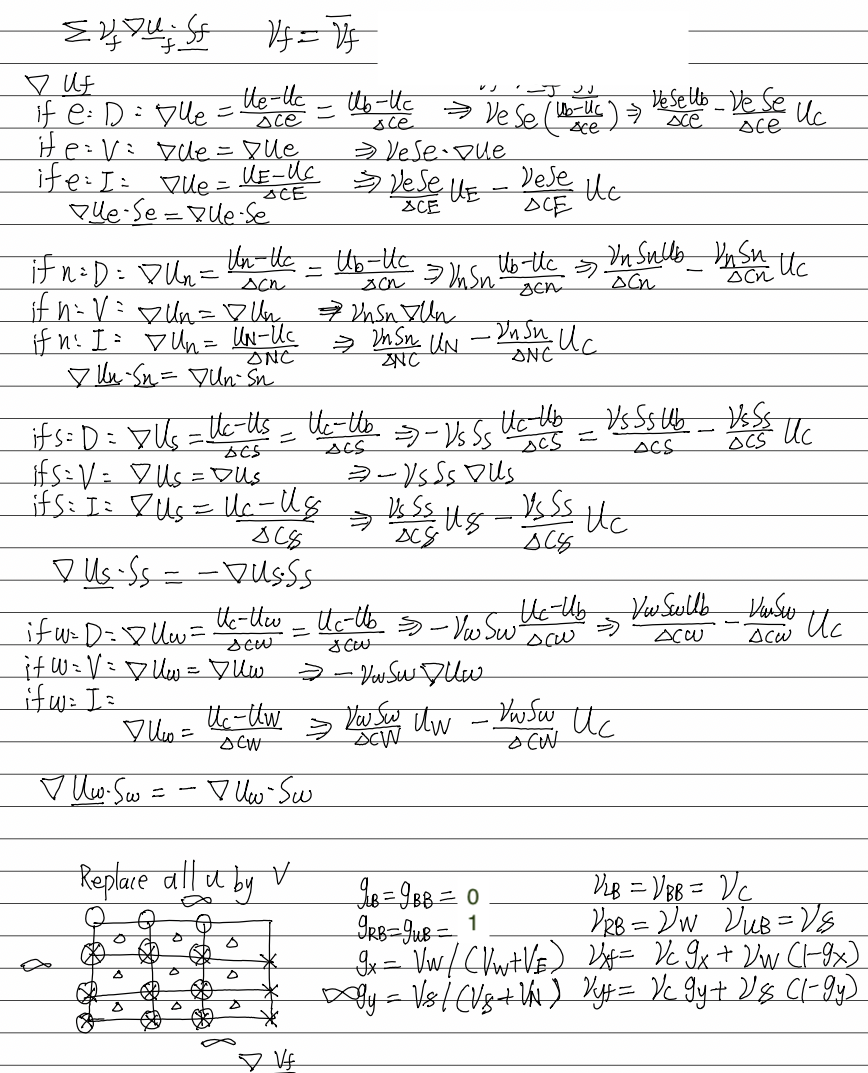 Σ ν_f ∇u_f · S_f    ν_f = ν̅_f
∇ u_f
if e: D: ∇u_e = (u_e − u_c)/Δce = (u_b − u_c)/Δce ⇒ ν_e S_e ((u_b − u_c)/Δce) ⇒ ν_e S_e u_b/Δce − ν_e S_e/Δce u_c
if e: V: ∇u_e = ∇u_e ⇒ ν_e S_e · ∇u_e
if e: I: ∇u_e = (u_E − u_c)/ΔCE ⇒ ν_e S_e/ΔCE u_E − ν_e S_e/ΔCE u_c
∇u_e · S_e = ∇u_e · S_e
if n: D: ∇u_n = (u_n − u_c)/Δcn = (u_b − u_c)/Δcn ⇒ ν_n S_n (u_b − u_c)/Δcn ⇒ ν_n S_n u_b/Δcn − ν_n S_n/Δcn u_c
if n: V: ∇u_n = ∇u_n ⇒ ν_n S_n ∇u_n
if n: I: ∇u_n = (u_N − u_c)/ΔNC ⇒ ν_n S_n/ΔNC u_N − ν_n S_n/ΔNC u_c
∇ u_n · S_n = ∇u_n · S_n
if s: D: ∇u_s = (u_c − u_s)/Δcs = (u_c − u_b)/Δcs ⇒ −ν_s S_s (u_c − u_b)/Δcs = ν_s S_s u_b/Δcs − ν_s S_s/Δcs u_c
if s: V: ∇u_s = ∇u_s ⇒ −ν_s S_s ∇u_s
if s: I: ∇u_s = (u_c − u_S)/ΔCS ⇒ ν_s S_s/ΔCS u_S − ν_s S_s/ΔCS u_c
∇ u_s · S_s = −∇u_s · S_s
if w: D: ∇u_w = (u_c − u_w)/Δcw = (u_c − u_b)/Δcw ⇒ −ν_w S_w (u_c − u_b)/Δcw ⇒ ν_w S_w u_b/Δcw − ν_w S_w/Δcw u_c
if w: V: ∇u_w = ∇u_w ⇒ −ν_w S_w ∇u_w
if w: I:
∇u_w = (u_c − u_W)/ΔCW ⇒ ν_w S_w/ΔCW u_W − ν_w S_w/ΔCW u_c
∇ u_w · S_w = −∇u_w · S_w
Replace all u by V
g_LB = g_BB = 0    ν_LB = ν_BB = ν_c
g_RB = g_UB = 1    ν_RB = ν_W    ν_UB = ν_S
g_x = V_W / (V_W + V_E)    ν_xf = ν_c g_x + ν_W (1 − g_x)
g_y = V_S / (V_S + V_N)    ν_yf = ν_c g_y + ν_S (1 − g_y)
∇ V_f